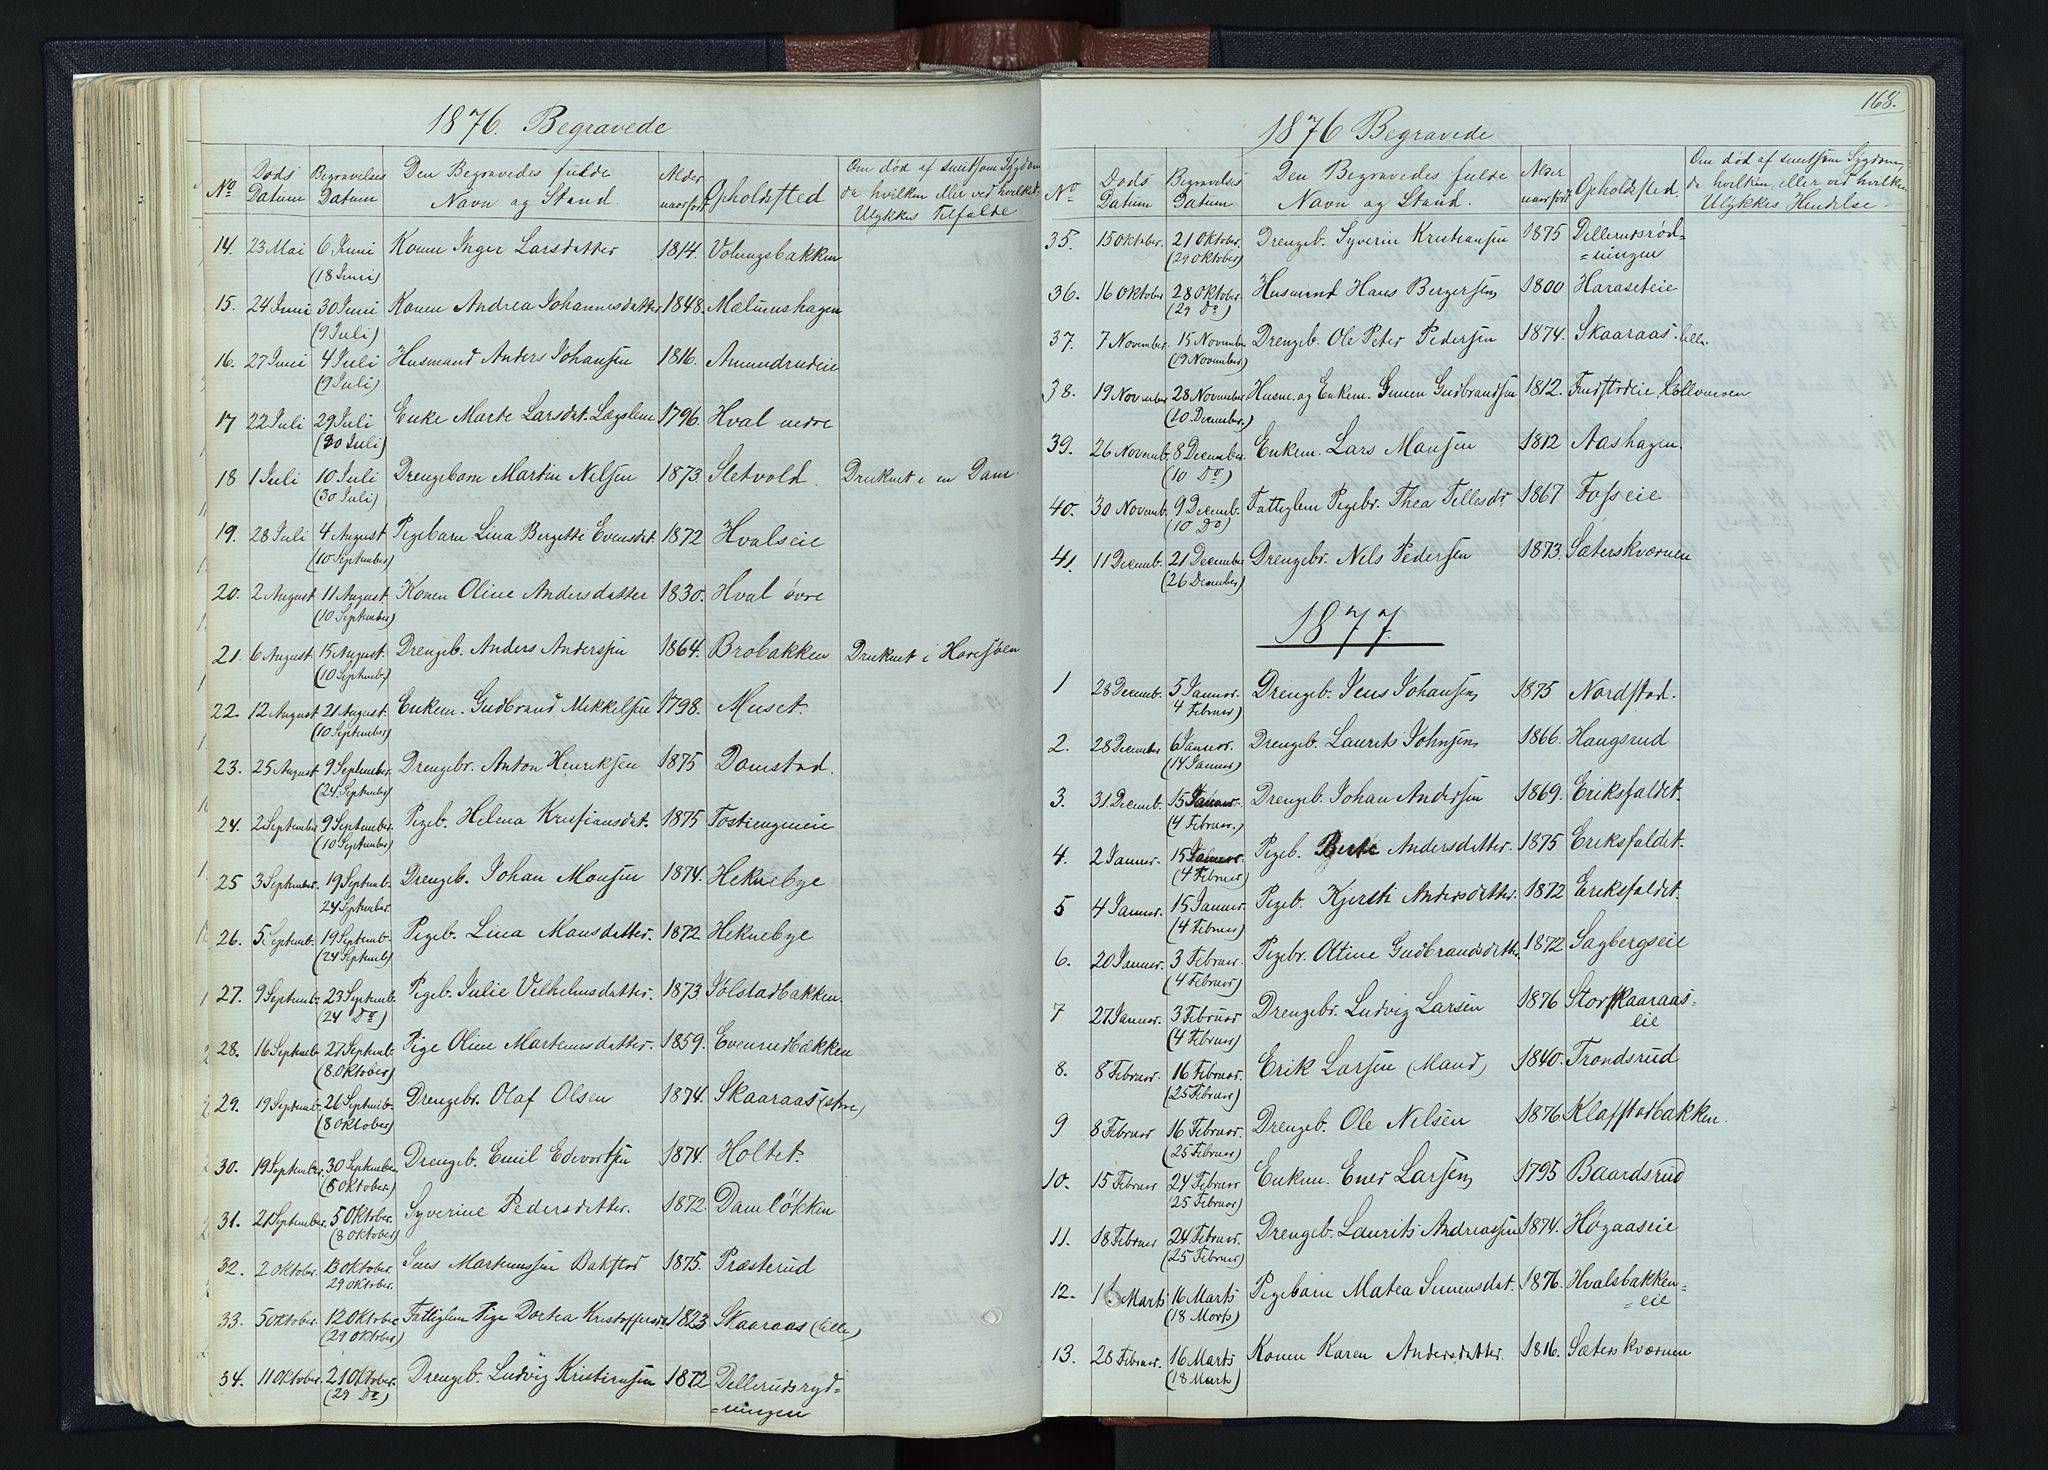 1876. Begravede
No
Döds Datum
Begravelses Datum
Den Begravedes fulde Navn og Stand.
Alder naar født
Opholdsted
Om död af smitsom Sygdom da hvilken eller ved hvilket Ulykkes Tilfælde
14. 23 Mai 6 Juni (18 Juni) Konen Inger Larsdatter 1814. Volungsbakken
15. 24 Juni 30 Juni (9 Juli) Konen Andrea Johannesdatter 1848. Mælumshagen
16. 27 Juni 4 Juli (9 Juli) Husmand Anders Johansen 1816. Amundrudeie
17 22 Juli 29 Juli (30 Juli) Enke Marte Larsdat. Lægslem 1796. Hval nedre
18 1 Juli 10 Juli (30 Juli) Drengebarn Martin Nilsen 1873. Sletvold. Druknet i en Dam.
19. 28 Juli 4 August (10 September) Pigebarn Lina Bergette Evensdat. 1872 Hvalseie
20. 2 August 11 August. (10 September) Konen Oline Andersdatter 1830. Hval övre
21. 6 August. 15 August. (10 Septemb.) Drengeb. Anders Anderssen 1864. Brobakken Druknet i Haresöen
22. 12 August 21 August. (10 September) Enkem. Gudbrand Mikkelsen 1798. Muset.
23. 25 August. 9 September. (24 September) Drengebr. Anton Henriksen 1875 Damstad.
24. 2 September 9 September. (10 September) Pigeb. Helena Kristiansdat. 1875 Tostiengmeie
25 3 September. 19 Septemb. 24 September. Drengeb. Johan Monsen 1874. Heknebye
26. 5 Septemb. 19 Septemb. (24 Septemb) Pigeb. Lina Monsdatter. 1872 Heknebye
27. 9 Septemb. 23 Septemb. (24 Do) Pigeb. Julie Vilhelmsdatter. 1873 Jölstadbakken.
28. 16 Septemb. 27 Septemb. (8. Oktober) Pige Oline Martinusdatter. 1859. Evenrudbækken
29. 19 Septemb. 26 Septemb. (8 Oktober) Drengebr. Olaf Olsen 1874. Skaaraas (store)
30. 19 September. 30 September. (8 Oktober.) Drengeb. Emil Edvartsen 1874. Holtet.
31. 21 September. 5 Oktober. (8 Oktober) Syverine Pedersdatter. 1872. Damlökken
32. 2 Oktober. 13 Oktober. 29 Oktober. Jens Martinussen Bakstad 1875. Præsterud
33. 5 Oktober. 12 Oktober (29 Oktober) Fattiglem Pige Dortea Kristoffersd. 1823 Skaaraas (lille)
34. 11 Oktober. 21 Oktober. (29 Do) Drengeb. Ludvig Kristiansen 1872 Dellerudsryd=
=ningen
168.
1876 Begravede
No
Döds Datum
Begravelses Datum
Den Begravedes fulde Navn og Stand.
Alder naar født
Opholdsted.
Om död af smitsom Sygdom, da hvilken, eller ved hvilken Ulykkes Hendelse.
35. 15 Oktober. 21 Oktober. (29 Oktober) Drengeb. Syverin Kristiansen 1875 Dellerudsrød=
=ningen
36. 16 Oktober 28 Oktober. (29 Do) Husmand Hans Bergersen 1800 Haraseteie
37. 7 November. 15 November (19 November) Drengeb. Ole Peter Pedersen 1874. Skaaraas lille.
38. 19 November 28 November (10 December.) Husm. og Enkem. Simen Gudbrandsen 1812.
39. 26 Novemb. 8 December (10 Do) Enkem. Lars Monsen 1812 Aashagen.
40. 30 Novemb. 9 Decemb. (10 Do) Fattiglem Pigebr. Thea Tillesdr 1867 Fosseie
41. 11 Decemb. 21 December (26 December) Drengebr. Nils Pedersen 1873. Sæterskværnen
1877.
1 28 Decemb. 5 Januar. 4 Februar) Drengeb. Jens Johansen 1875 Nordstad.
2. 28 December 6 Januar. (14 Januar) Drengeb. Laurits Johnsen 1866. Haugsrud
3. 31 Decemb. 15 Januar. (4 Februar.) Drengeb. Johan Andersen 1869. Eriksfaldet.
4. 2 Januar. 15 Januar (4 Februar) Pigeb. Berte Andersdatter. 1875 Eriksfaldet.
5 4 Januar. 15 Januar. (4 Februar) Pigeb. Kjersti Andersdatter. 1872 Eriksfaldet.
6. 20 Januar. 3 Februar. (4 Februar) Pigebr. Oline Gudbrandsdatter. 1872 Sagbergseie
7 27 Januar. 3 Februar (4 Februar) Drengebr. Ludvig Larsen 1876 Storskaaraas=
eie
8. 8 Februar. 16 Februar. (25 Februar) Erik Larsen (Mand) 1840. Trondsrud
9 8 Februar 16 Februar. (25 Februar) Drengeb. Ole Nilsen 1876. Klafstadbakken.
10. 15 Februar 24 Februar (25 Februar) Enkem. Ener Larsen 1795 Baardsrud
11. 18 Februar 24 Februar. (25 Februar) Drengeb. Laurits Andreassen 1874. Høgaaseie
12. Marts 16 Marts (18 Marts) Pigebarn Matea Simensdat. 1876. Hvalsbakken=
=eie
13. 28 Februar. 16 Marts (18 Marts) Konen Karen Andersdatter. 1816. Sæterskværnen